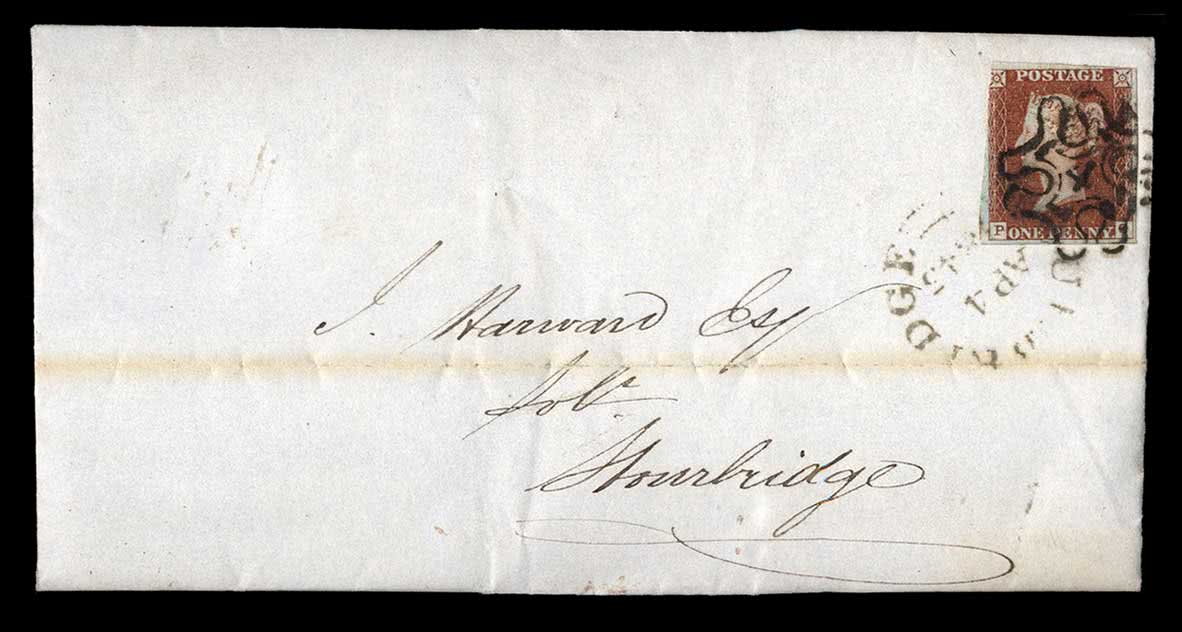 POSTAGE
P ONE PENNY
DGE
AP 4
J. Harward Esq
Solr
Stourbridge